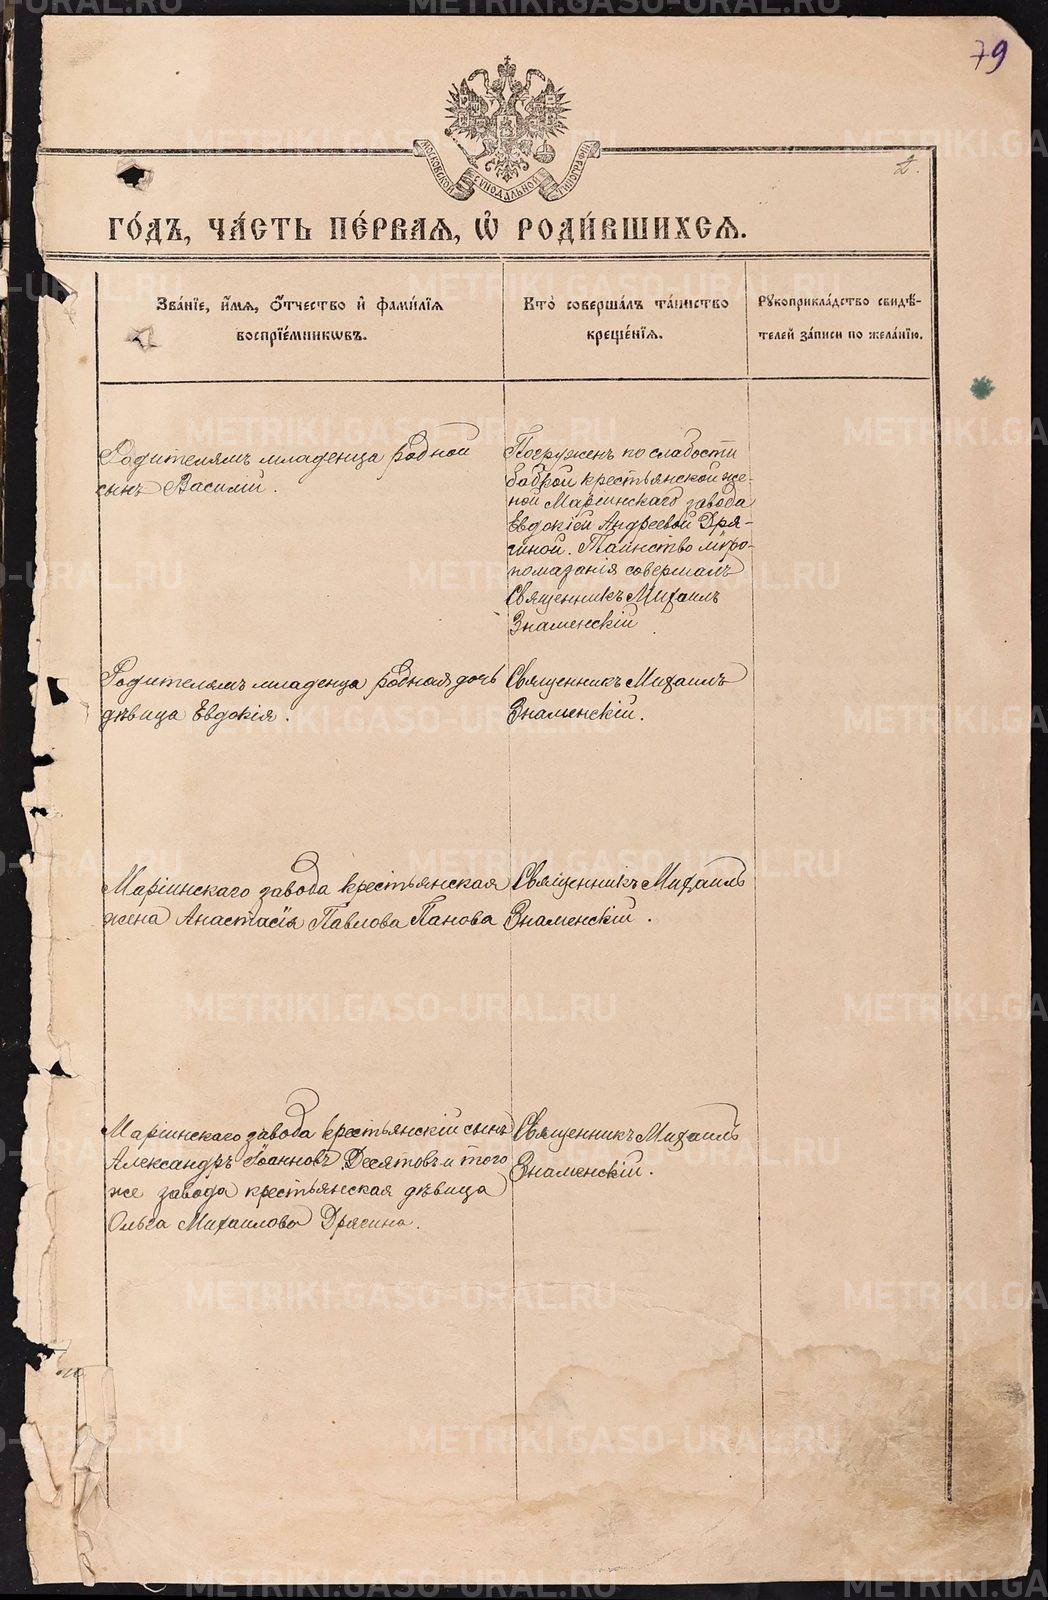 79
МОСКОВСКОЙ СѴНОДАЛЬНОЙ ТИПОГРАФІИ
2.
ГО́ДЪ, ЧА́СТЬ ПЕ́РВАѦ, Ѡ҆ РОДИ́ВШИХСѦ.
Зва́нїе, и҆́мѧ, ѻ҆́тчество и҆ фами́лїѧ
воспрїе́мникѡвъ.
Кто̀ соверша́лъ та́инство
креще́нїѧ.
Рꙋкоприкла́дство свидѣ́-
телей за́писи по жела́нїю.
Родителямъ младенца родной
сынъ Василий.
Погруженъ по слабости
бабкой крестьянской же-
ной Маріинскаго завода
Евдокіей Андреевой Дря-
гиной. Таинство мѵро-
помазанія совершалъ
Священникъ Михаилъ
Знаменскій
Родителямъ младенца родная дочь
дѣвица Евдокія.
Священникъ Михаилъ
Знаменскій.
Маріинскаго завода крестьянская
жена Анастасія Павлова Панова
Священникъ Михаилъ
Знаменскій.
Маріинскаго завода крестьянскій сынъ
Александръ Іоанновъ Десятовъ и того
же завода крестьянская дѣвица
Ольга Михаилова Дрягина.
Священникъ Михаилъ
Знаменскій.
METRIKI.GASO-URAL.RU